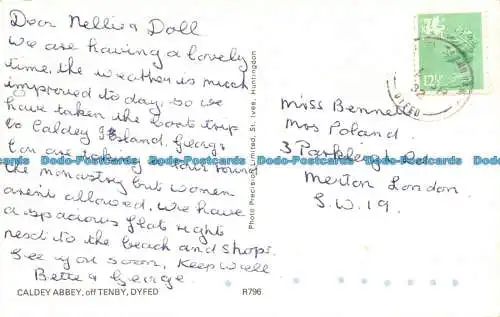 Dear Nellie & Doll
We are having a lovely
time, the weather is much
improved to day, so we
have taken the boat trip
to Caldey Island, George
Ron are taking a tour round
the monastry but women
arent allowed. We have
a spacious flat right
next to the beach and shops.
See you soon, Keep Well
Bette & George.
CALDEY ABBEY, off TENBY, DYFED
R796
Photo Precision Limited, St. Ives, Huntingdon
12½
DYFED
Miss Bennell
Mrs Poland
3
Merton London
S.W.19.
Dodo-Postcards Dodo-Postcards Dodo-Postcards Dodo-Postcards